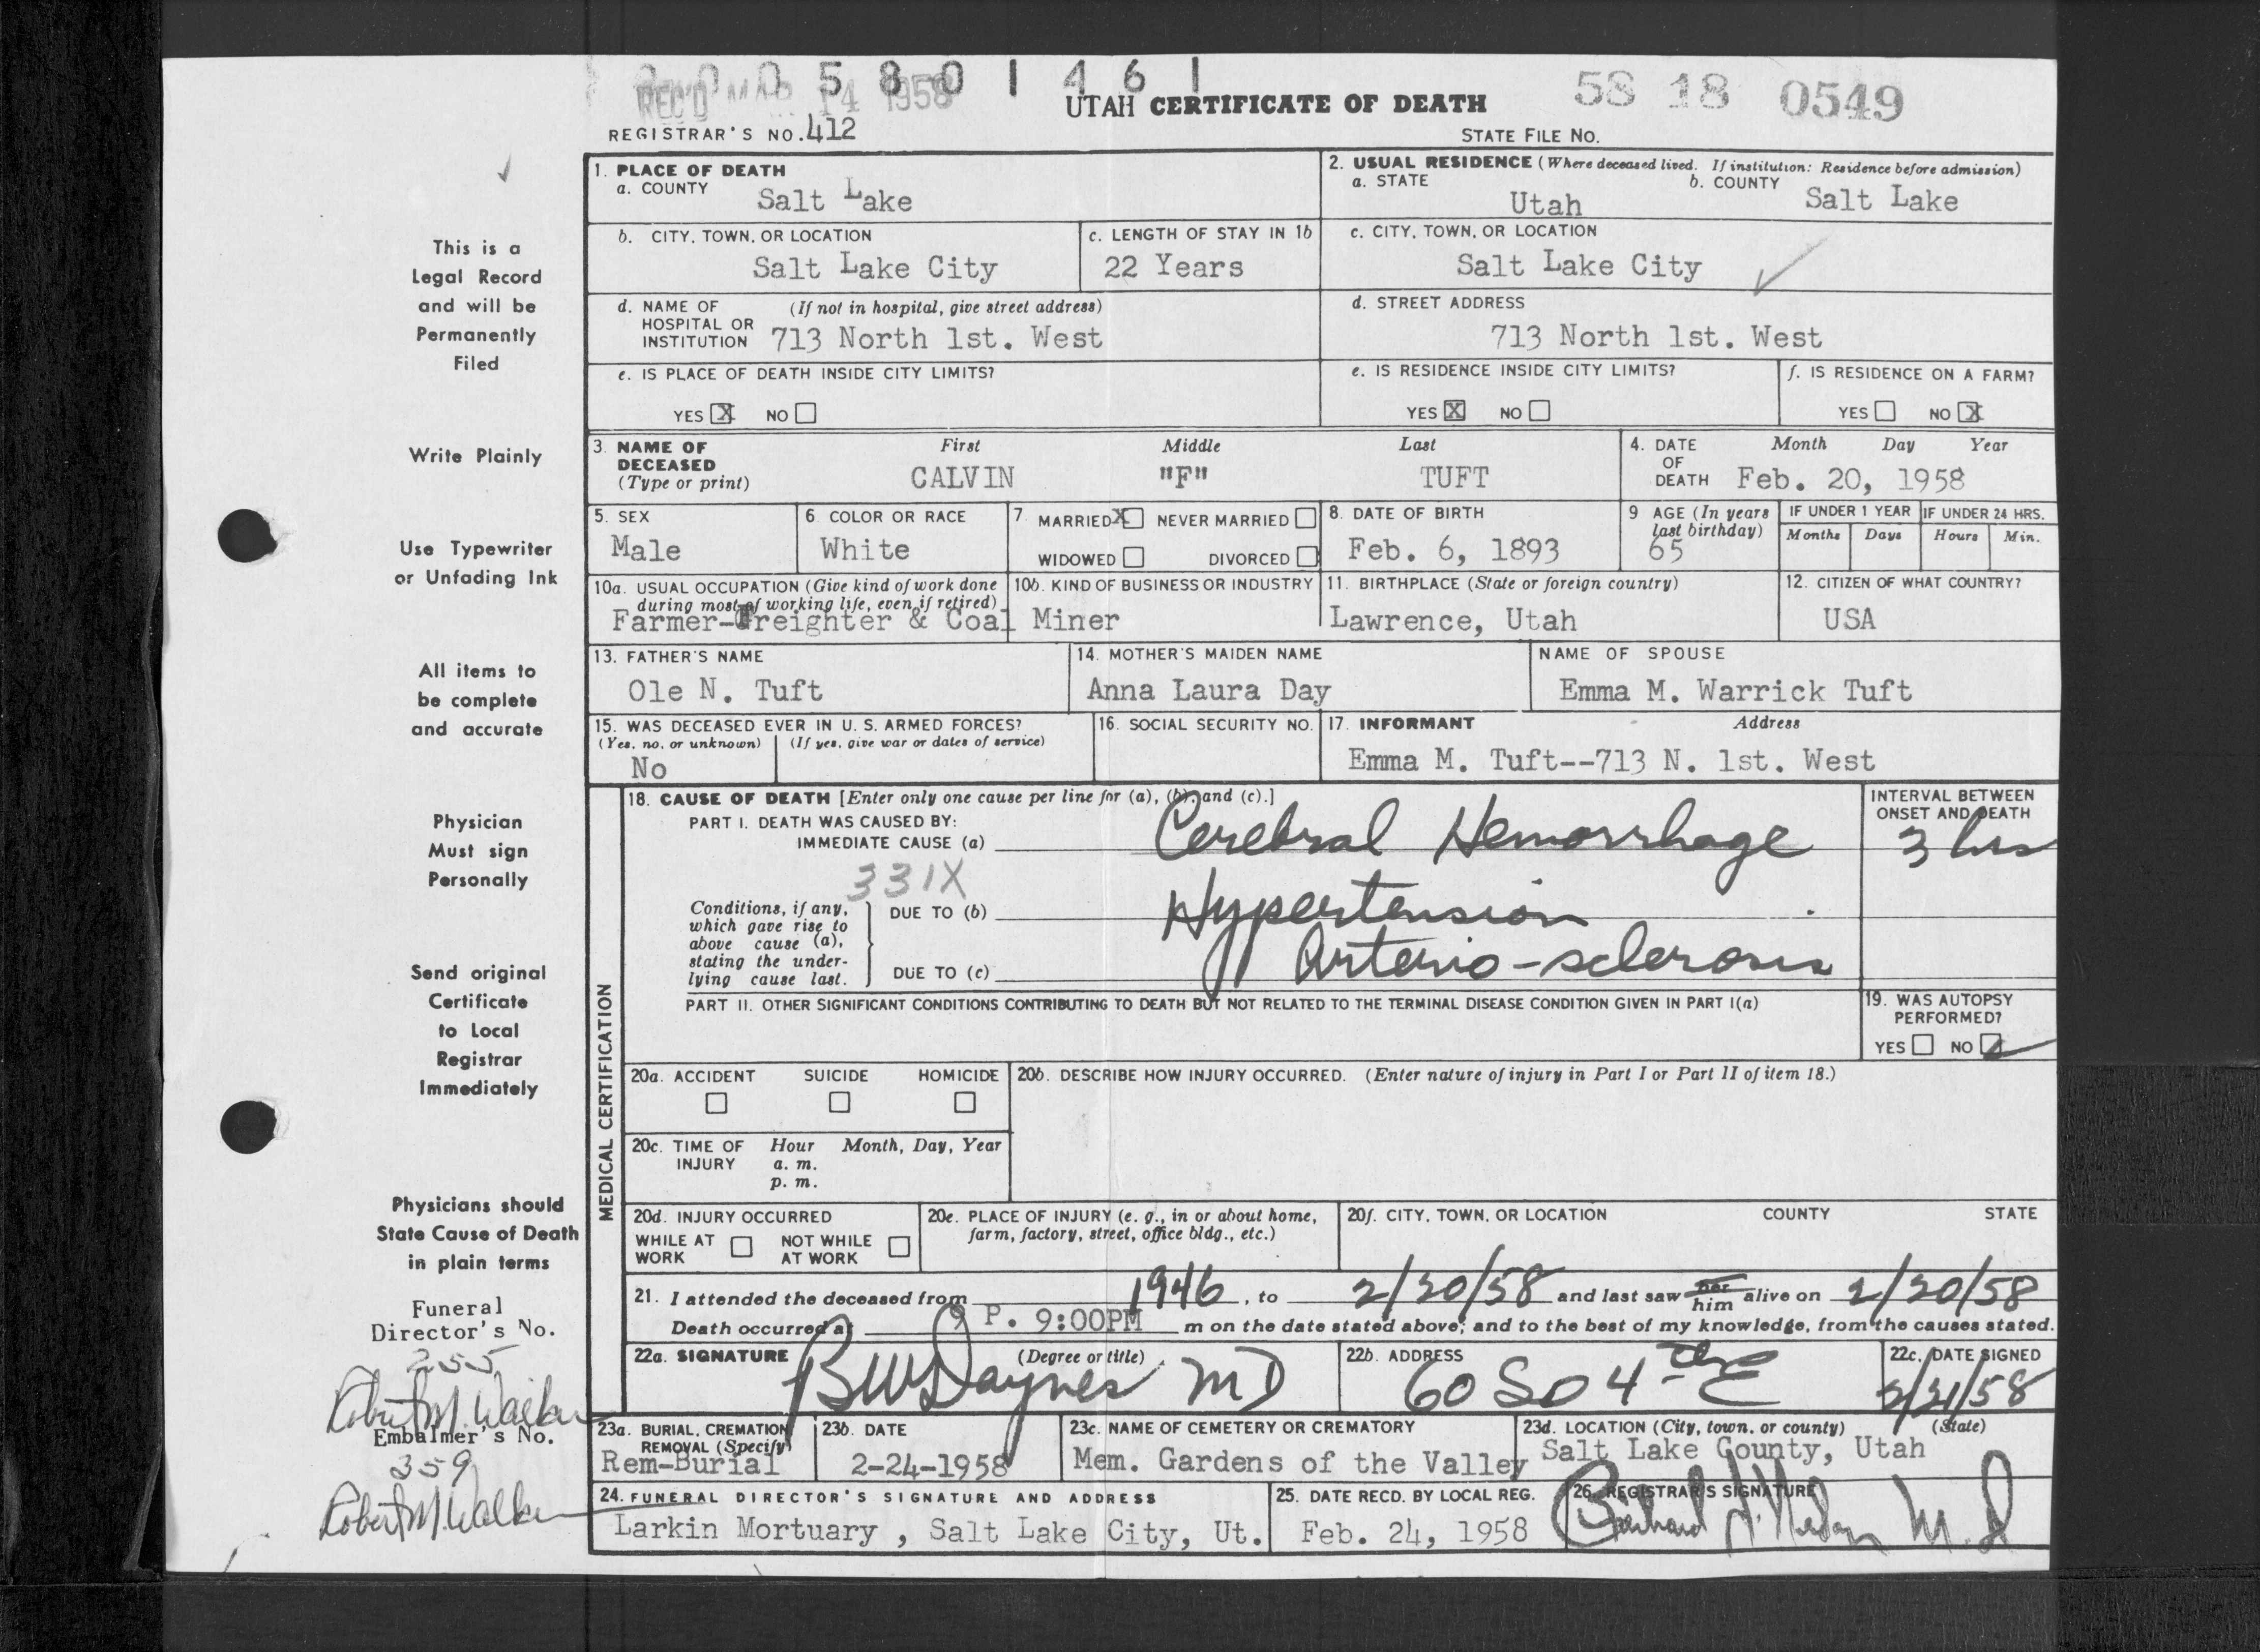 0 0 0 5 8 0 1 4 6 1
REC'D MAR 14 1958
UTAH CERTIFICATE OF DEATH
58 18 0549
REGISTRAR'S NO. 412
STATE FILE NO.
This is a
Legal Record
and will be
Permanently
Filed
Write Plainly
Use Typewriter
or Unfading Ink
All items to
be complete
and accurate
Physician
Must sign
Personally
Send original
Certificate
to Local
Registrar
Immediately
Physicians should
State Cause of Death
in plain terms
Funeral
Director's No.
255
Robert M. Walker
Embalmer's No.
359
Robert M. Walker
1. PLACE OF DEATH
a. COUNTY
Salt Lake
2. USUAL RESIDENCE (Where deceased lived. If institution: Residence before admission)
a. STATE
Utah
b. COUNTY
Salt Lake
b. CITY, TOWN, OR LOCATION
Salt Lake City
c. LENGTH OF STAY IN 1b
22 Years
c. CITY, TOWN, OR LOCATION
Salt Lake City
d. NAME OF (If not in hospital, give street address)
HOSPITAL OR
INSTITUTION 713 North 1st. West
d. STREET ADDRESS
713 North 1st. West
e. IS PLACE OF DEATH INSIDE CITY LIMITS?
YES X NO
e. IS RESIDENCE INSIDE CITY LIMITS?
YES X NO
f. IS RESIDENCE ON A FARM?
YES NO X
3. NAME OF First Middle Last
DECEASED
(Type or print) CALVIN "F" TUFT
4. DATE Month Day Year
OF
DEATH Feb. 20, 1958
5. SEX
Male
6. COLOR OR RACE
White
7. MARRIED X NEVER MARRIED
WIDOWED DIVORCED
8. DATE OF BIRTH
Feb. 6, 1893
9 AGE (In years
last birthday)
65
IF UNDER 1 YEAR
Months Days
IF UNDER 24 HRS.
Hours Min.
10a. USUAL OCCUPATION (Give kind of work done
during most of working life, even if retired)
10b. KIND OF BUSINESS OR INDUSTRY
Farmer-Freighter & Coal Miner
11. BIRTHPLACE (State or foreign country)
Lawrence, Utah
12. CITIZEN OF WHAT COUNTRY?
USA
13. FATHER'S NAME
Ole N. Tuft
14. MOTHER'S MAIDEN NAME
Anna Laura Day
NAME OF SPOUSE
Emma M. Warrick Tuft
15. WAS DECEASED EVER IN U. S. ARMED FORCES?
(Yes, no, or unknown) (If yes, give war or dates of service)
No
16. SOCIAL SECURITY NO.
17. INFORMANT Address
Emma M. Tuft--713 N. 1st. West
MEDICAL CERTIFICATION
18. CAUSE OF DEATH [Enter only one cause per line for (a), (b), and (c).]
PART I. DEATH WAS CAUSED BY:
IMMEDIATE CAUSE (a) Cerebral Hemorrhage
INTERVAL BETWEEN
ONSET AND DEATH
3 hrs
331X
Conditions, if any,
which gave rise to
above cause (a),
stating the under-
lying cause last.
DUE TO (b) Hypertension
DUE TO (c) Arterio-sclerosis
PART II. OTHER SIGNIFICANT CONDITIONS CONTRIBUTING TO DEATH BUT NOT RELATED TO THE TERMINAL DISEASE CONDITION GIVEN IN PART I(a)
19. WAS AUTOPSY
PERFORMED?
YES NO
20a. ACCIDENT SUICIDE HOMICIDE
20b. DESCRIBE HOW INJURY OCCURRED. (Enter nature of injury in Part I or Part II of item 18.)
20c. TIME OF Hour Month, Day, Year
INJURY a. m.
p. m.
20d. INJURY OCCURRED
WHILE AT NOT WHILE
WORK AT WORK
20e. PLACE OF INJURY (e. g., in or about home,
farm, factory, street, office bldg., etc.)
20f. CITY, TOWN, OR LOCATION COUNTY STATE
21. I attended the deceased from 1946, to 2/20/58 and last saw her him alive on 2/20/58
Death occurred at 9 P. 9:00PM m on the date stated above; and to the best of my knowledge, from the causes stated.
22a. SIGNATURE (Degree or title)
BW Daynes MD
22b. ADDRESS
60 So 4th E
22c. DATE SIGNED
2/21/58
23a. BURIAL, CREMATION
REMOVAL (Specify)
Rem-Burial
23b. DATE
2-24-1958
23c. NAME OF CEMETERY OR CREMATORY
Mem. Gardens of the Valley
23d. LOCATION (City, town, or county) (State)
Salt Lake County, Utah
24. FUNERAL DIRECTOR'S SIGNATURE AND ADDRESS
Larkin Mortuary , Salt Lake City, Ut.
25. DATE RECD. BY LOCAL REG.
Feb. 24, 1958
26. REGISTRAR'S SIGNATURE
M.D